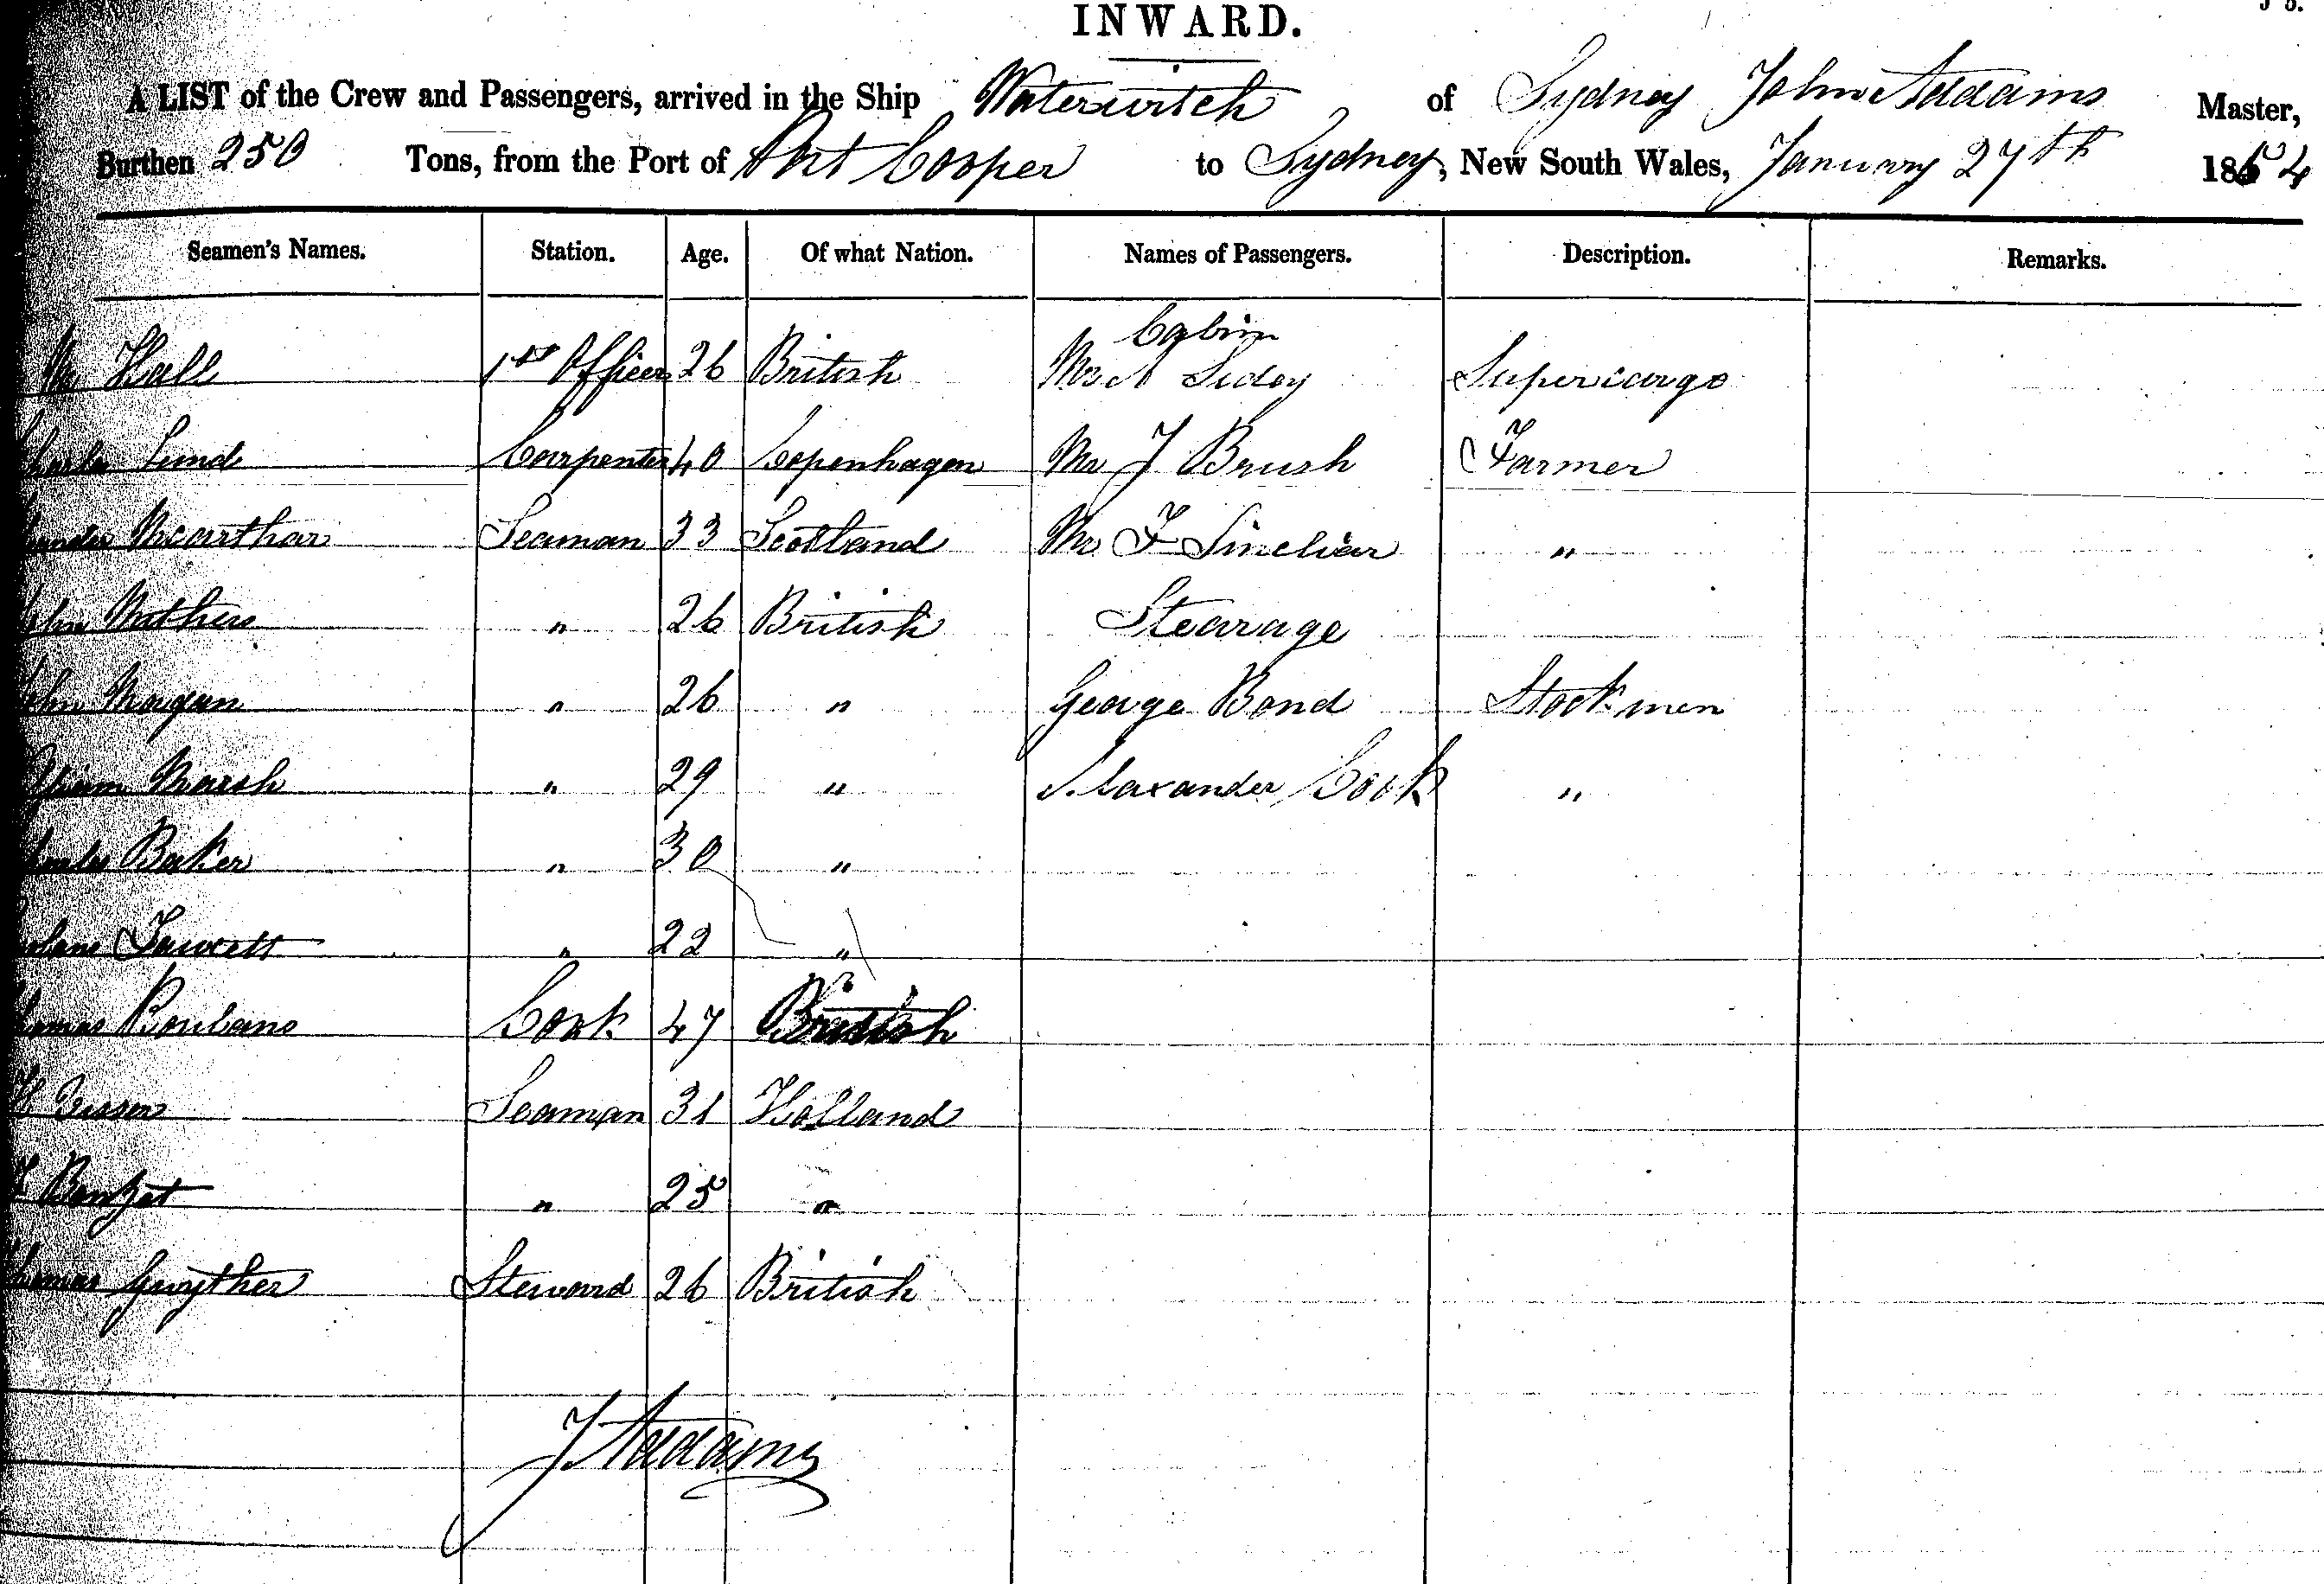 INWARD.
A LIST of the Crew and Passengers, arrived in the Ship Waterwitch of Sydney John Addams Master,
Burthen 250 Tons, from the Port of Port Cooper to Sydney, New South Wales, January 27th 1854
Seamen's Names. Station. Age. Of what Nation. Names of Passengers. Description. Remarks.
Cabin
Mr Hall 1st Officer 26 British Mr A Sidey Supercargo
Lund Carpenter 40 Copenhagen Mr J Brush Farmer
Mcarthar Seaman 33 Scotland Mr F Sincliar "
Mithers " 26 British Stearage
Magan " 26 " George Bond Stockmen
Marsh " 29 " Alaxander Cook "
Baker " 30 "
Fawcett " 22 "
Roulans Cook 47 British
Seaman 31 Holland
" 25 "
Gwyther Steward 26 British
J Addams